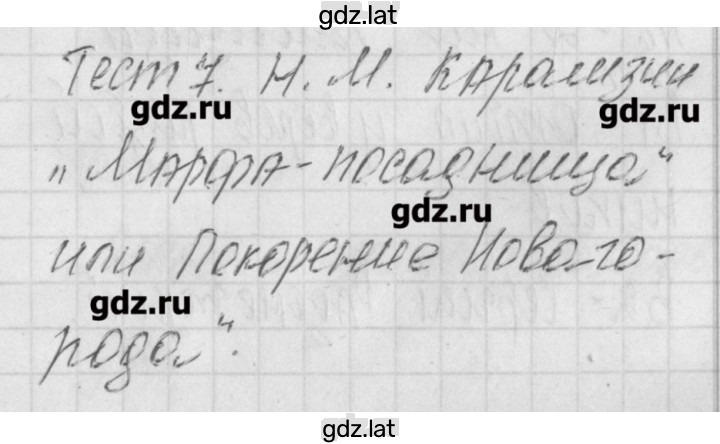 gdz.lat
Тест 7. Н. М. Карамзин
gdz.ru
gdz.ru
„Марфа-посадница"
gdz.ru
или Покорение Новаго-
gdz.ru
рода".
gdz.lat